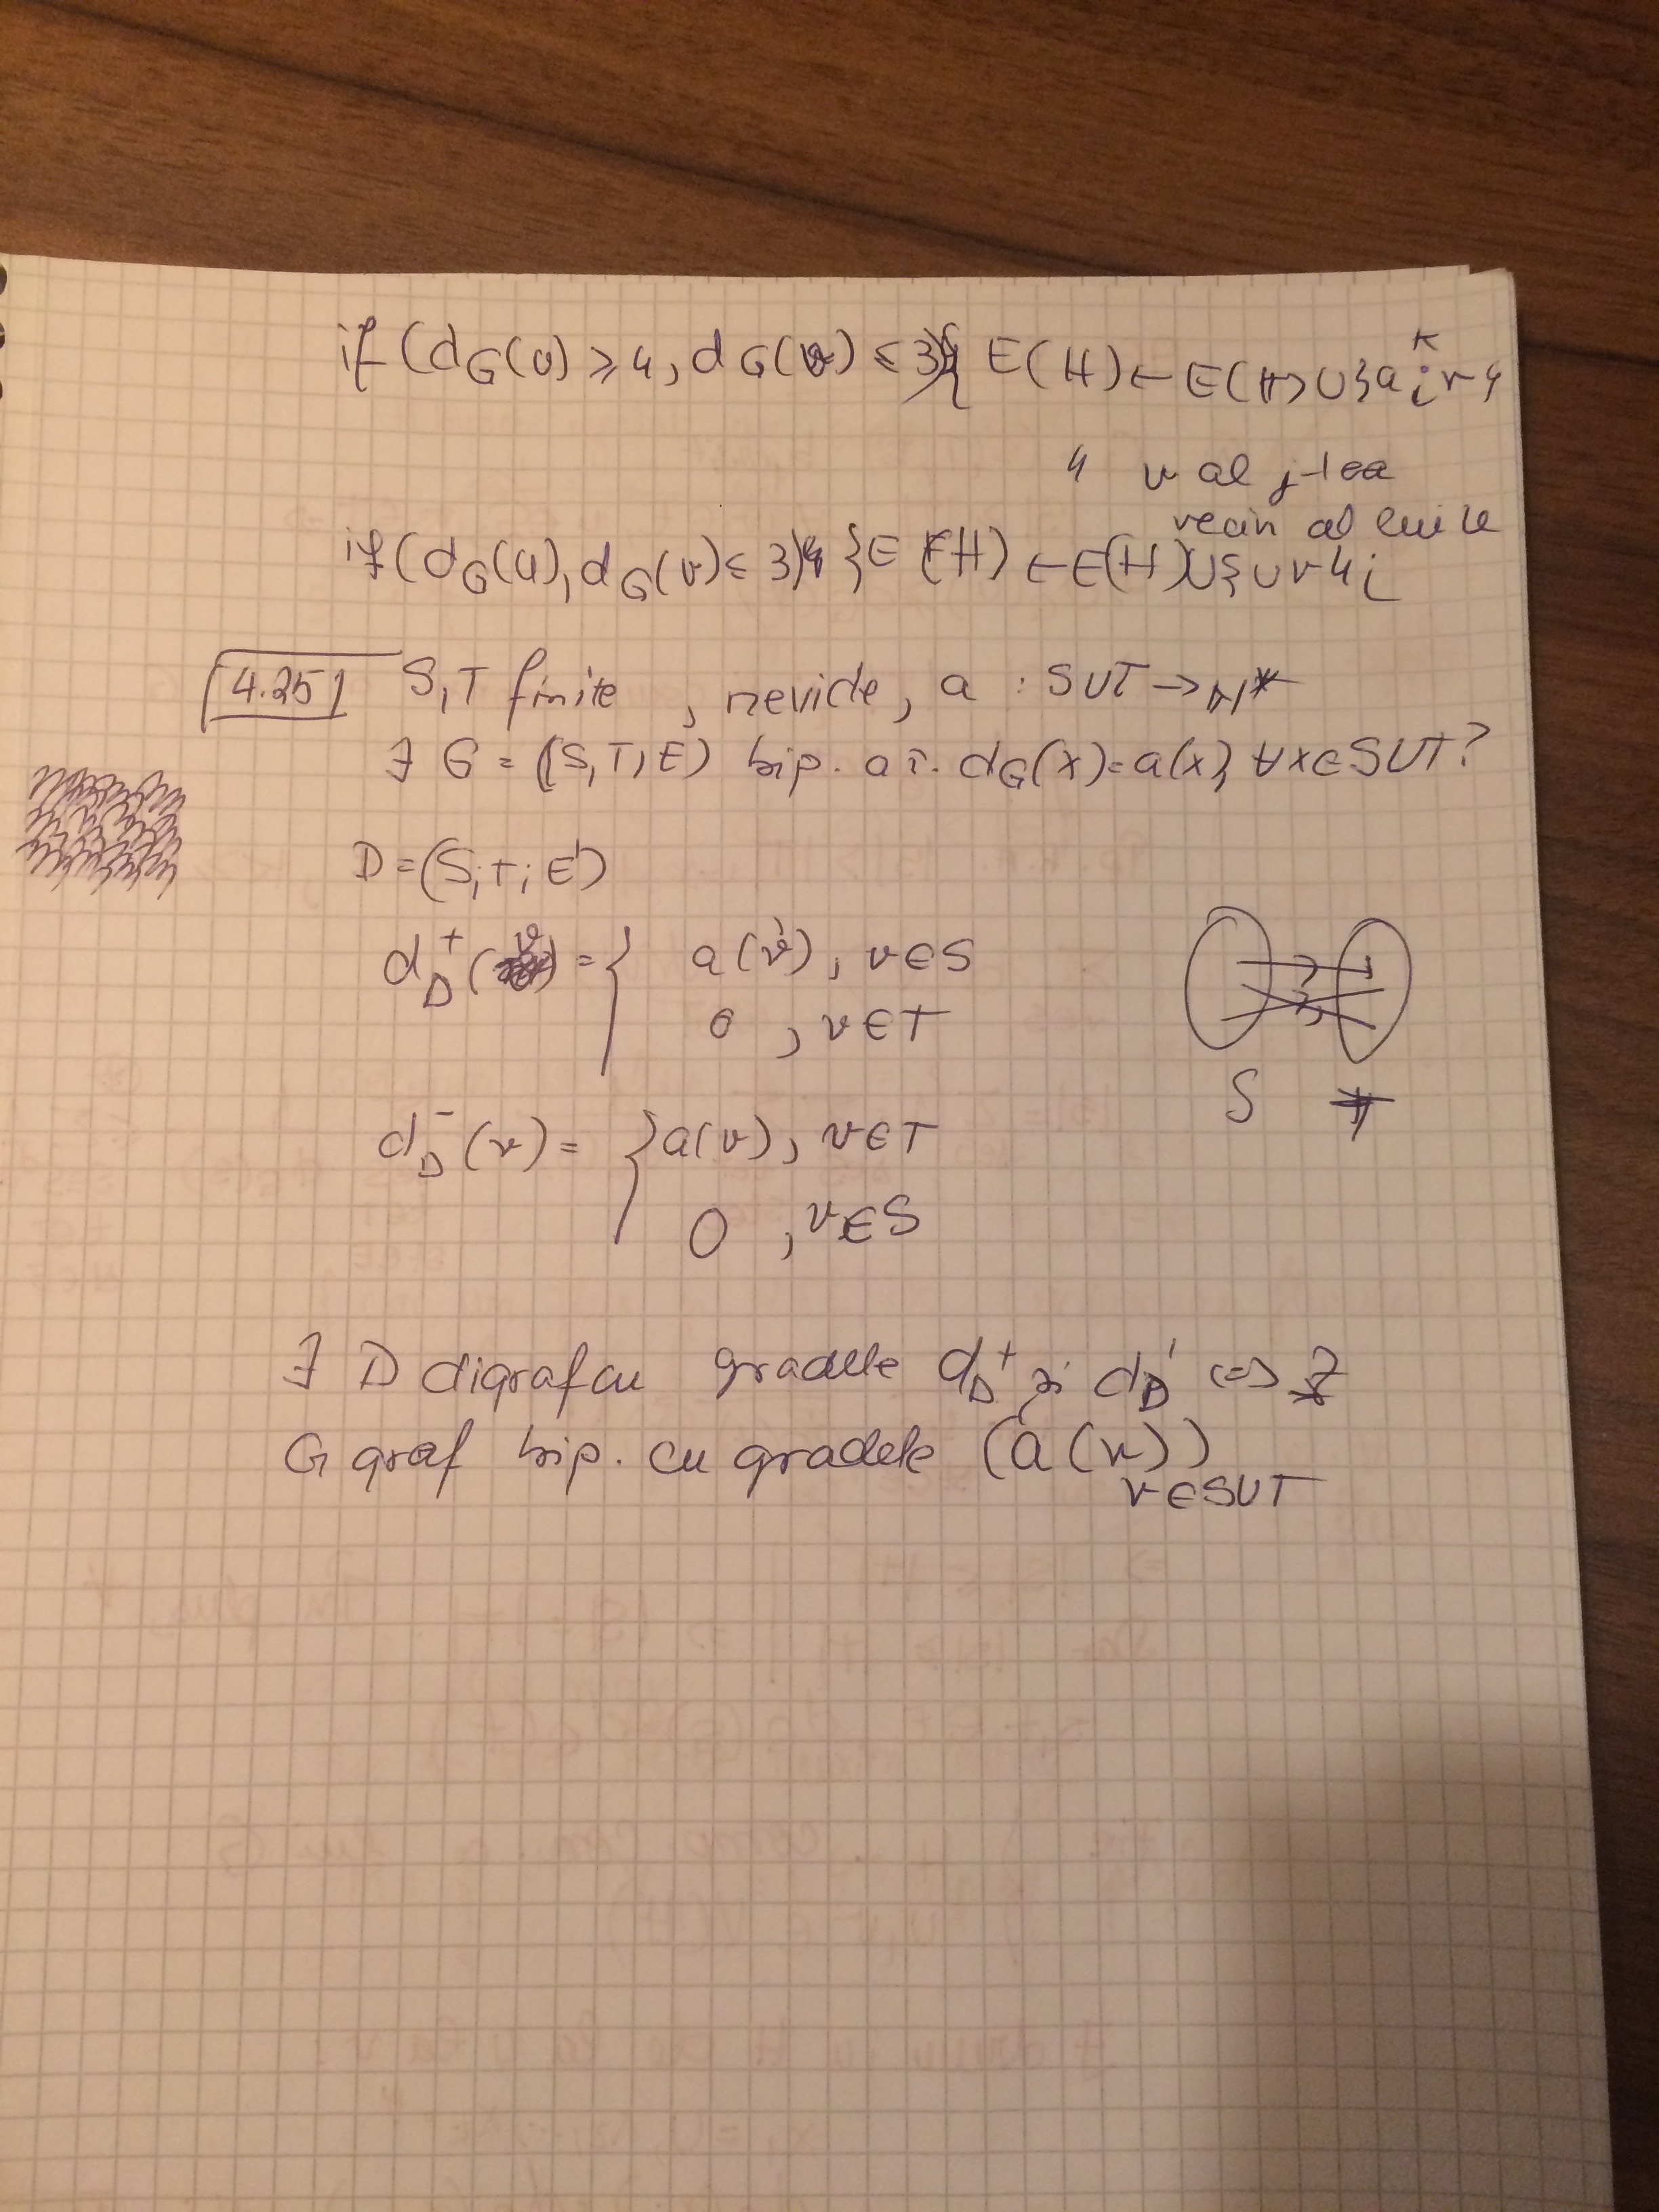 if (d_G(u) ≥ 4, d_G(v) ≤ 3) { E(H) ← E(H) ∪ {a_i^k v}
} v al j-lea
vecin al lui u
if (d_G(u), d_G(v) ≤ 3) { E(H) ← E(H) ∪ {uv};
4.25 S,T finite, nevide, a : S∪T → N*
∃ G = (S,T;E) bip. a.î. d_G(x) = a(x), ∀x∈S∪T?
D = (S;T;E')
d_D^+(v) = { a(v), v∈S
0, v∈T
d_D^-(v) = { a(v), v∈T
0, v∈S
S T
∃ D digraf cu gradele d_D^+ și d_D^- ⟺ ∃
G graf bip. cu gradele (a(v))_{v∈S∪T}